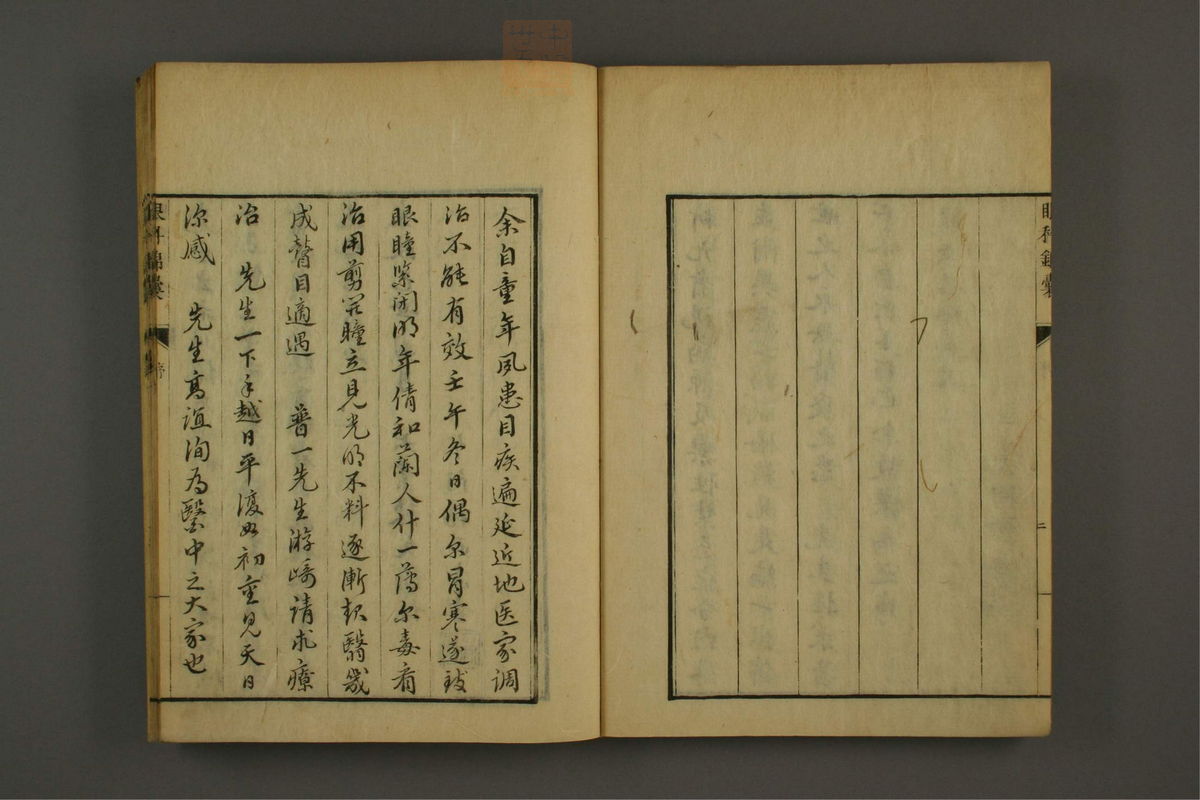 眼科錦囊
二
余自童年夙患目疾遍延近地医家调
治不能有效壬午冬日偶尔冒寒遂致
眼瞳紧闭明年倩和蘭人什一薄尔毒看
治用剪开瞳立見光明不料逐漸起翳幾
成瞽目適遇 普一先生游崎請求療
治 先生一下手越日平復如初重見天日
深感 先生高誼洵為醫中之大家也
眼科錦囊